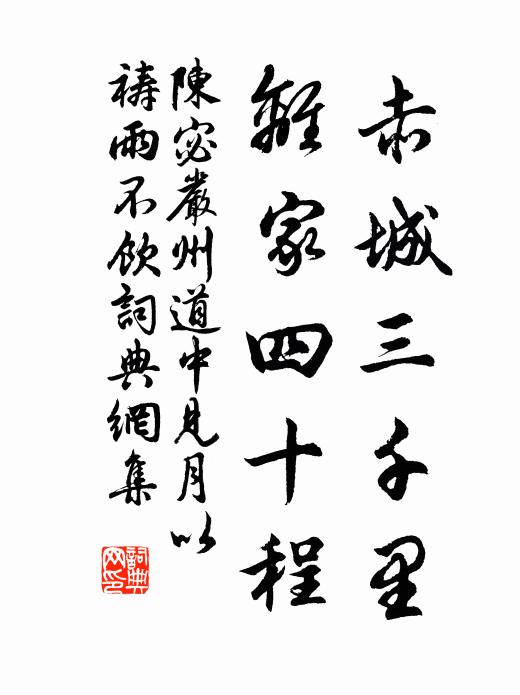 赤城三千里
離家四十程
陳宓嚴州道中見月以
禱雨不飲詞典網集
詞典網印